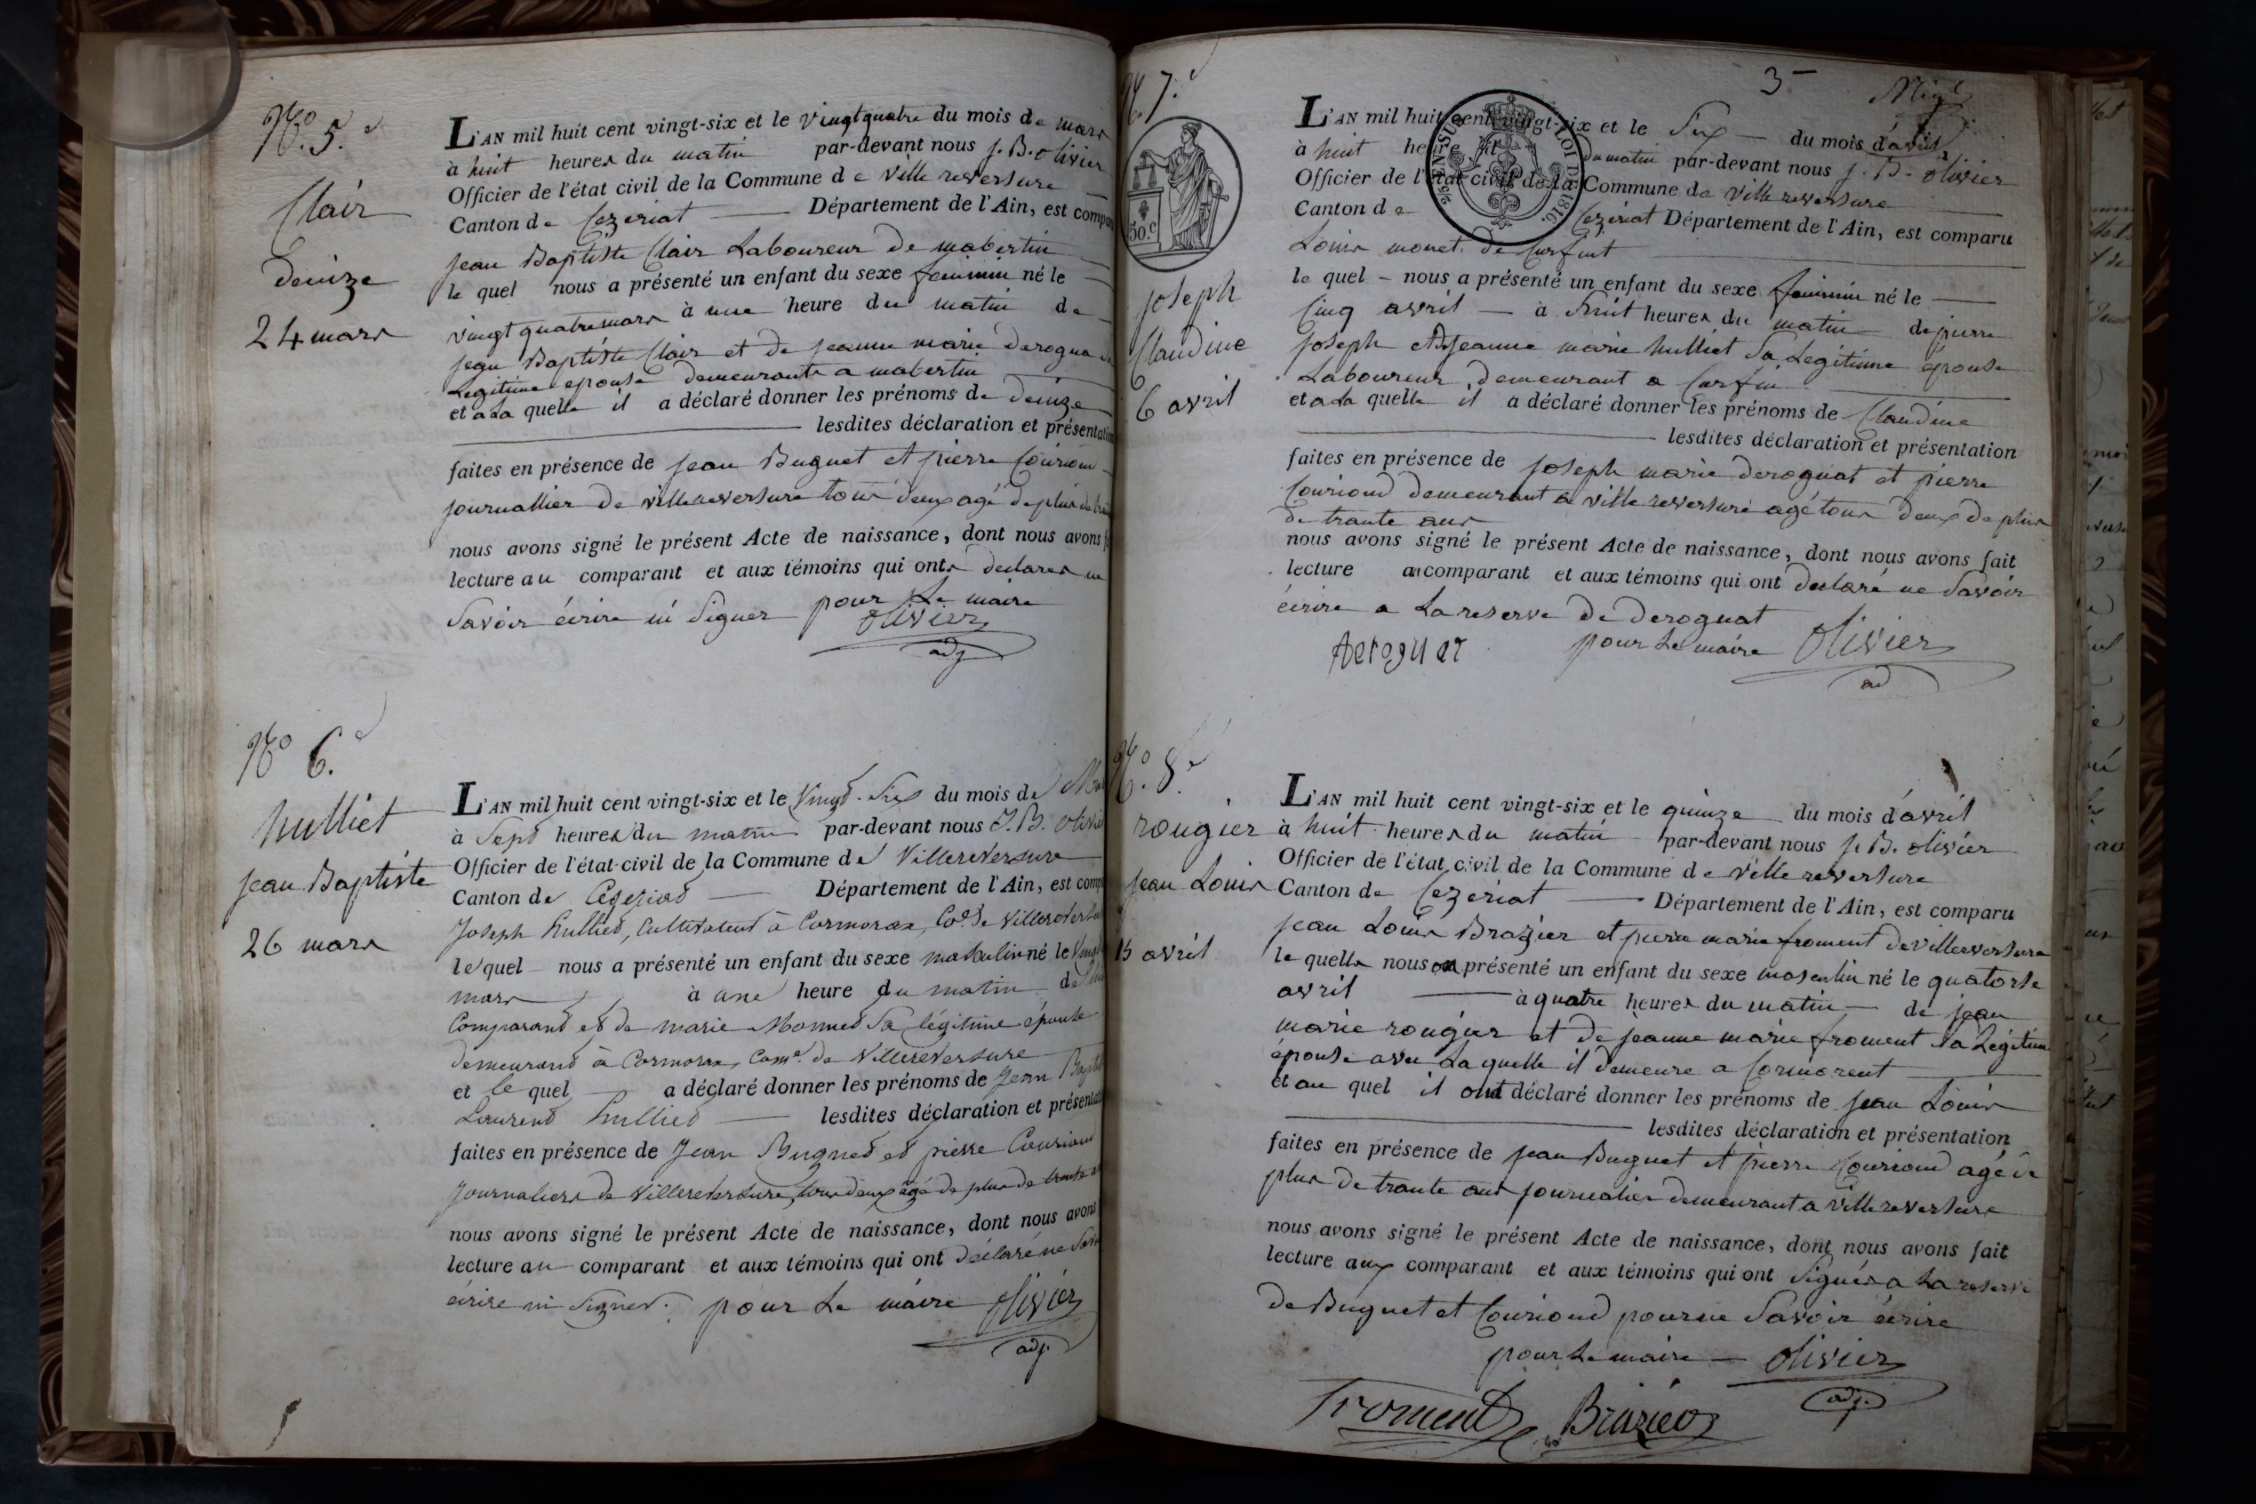 N.° 5.e
Clair
denize
24 mars
L'AN mil huit cent vingt-six et le vingtquatre du mois de mars
à huit heures du matin par-devant nous j. B. olivier
Officier de l'état civil de la Commune de ville reversure
Canton de Cezeriat Département de l'Ain, est compa
jean Baptiste Clair Laboureur de mabertin
le quel nous a présenté un enfant du sexe feminin né le
vingt quatre mars à une heure du matin de
jean Baptiste Clair et de jeanne marie derogna
Legitime epouse demeurante a mabertin
et a la quelle il a déclaré donner les prénoms de denize
lesdites déclaration et présentation
faites en présence de jean Buguet et pierre Couriou
journallier de villereversure tous deux agé de plus de
nous avons signé le présent Acte de naissance, dont nous avons
lecture au comparant et aux témoins qui onts declares ne
Savoir écrire ni Signer pour Le maire
olivier
adj
N° 6.e
hulliet
jean Baptiste
26 mars
L'AN mil huit cent vingt-six et le Vingt-Six du mois de
à Sept heures du matin par-devant nous J. B. Olivier
Officier de l'état civil de la Commune de Villereversure
Canton de Cézeriat Département de l'Ain, est comp
Joseph hulliet, Cultivateur à Cormoran, Co.e de Villereversure
le quel nous a présenté un enfant du sexe masculin né le Vingt
mars à une heure du matin de
Comparant et de marie Monnet Sa légitime épouse
demeurant à Cormoran, Com.e de Villereversure
et le quel a déclaré donner les prénoms de Jean Baptiste
Laurent hulliet lesdites déclaration et présentation
faites en présence de Jean Buguet et pierre Couriou
Journaliers de Villereversure, tous deux agé de plus de trente
nous avons signé le présent Acte de naissance, dont nous avons
lecture au comparant et aux témoins qui ont déclaré ne Savoir
écrire ni Signer. pour Le maire olivier
adj.
3
N.° 7.e
30.c
EN SUS LOI DE 1816.
joseph
Claudine
6 avril
L'AN mil huit cent vingt-six et le Six du mois d'avril
à huit heures du matin par-devant nous j. B. olivier
Officier de l'état civil de la Commune de ville reversure
Canton de Cezeriat Département de l'Ain, est comparu
Louis monet de Curfint
le quel nous a présenté un enfant du sexe feminin né le
Cinq avril à huit heures du matin de pierre
joseph et de jeanne marie hulliet Sa Legitime épouse
Laboureur demeurant a Curfin
et a la quelle il a déclaré donner les prénoms de Claudine
lesdites déclaration et présentation
faites en présence de joseph marie deroguat et pierre
Courioud demeurant a ville reversure agé tous deux de plus
de trante ans
nous avons signé le présent Acte de naissance, dont nous avons fait
lecture au comparant et aux témoins qui ont declaré ne Savoir
écrire a La reserve de deroguat
deroguat pour Le maire olivier
ad
N.° 8.e
rougier
jean Louis
15 avril
L'AN mil huit cent vingt-six et le quinze du mois d'avril
à huit heures du matin par-devant nous j. B. olivier
Officier de l'état civil de la Commune de ville reversure
Canton de Cezeriat Département de l'Ain, est comparu
jean Louis Brazier et pierre marie froment de villereversure
le quells nous on présenté un enfant du sexe masculin né le quatorse
avril à quatre heures du matin de jean
marie rougier et de jeanne marie froment Sa Légitime
épouse avec Laquelle il demeure a Cormorent
et au quel il ont déclaré donner les prénoms de jean Louis
lesdites déclaration et présentation
faites en présence de jean Buguet et pierre Courioud agé de
plus de trante ans journalier demeurant a ville reversure
nous avons signé le présent Acte de naissance, dont nous avons fait
lecture aux comparant et aux témoins qui ont Signés a La reserve
de Buguet et Courioud pour ne Savoir écrire
pour Le maire olivier
adj.
Froment Brazier